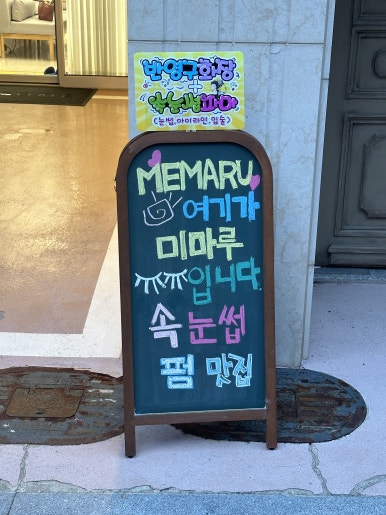 반영구화장
+
속눈썹파마
(눈썹,아이라인,입술)
MEMARU
여기가
미마루
입니다.
속눈썹
펌 맛집